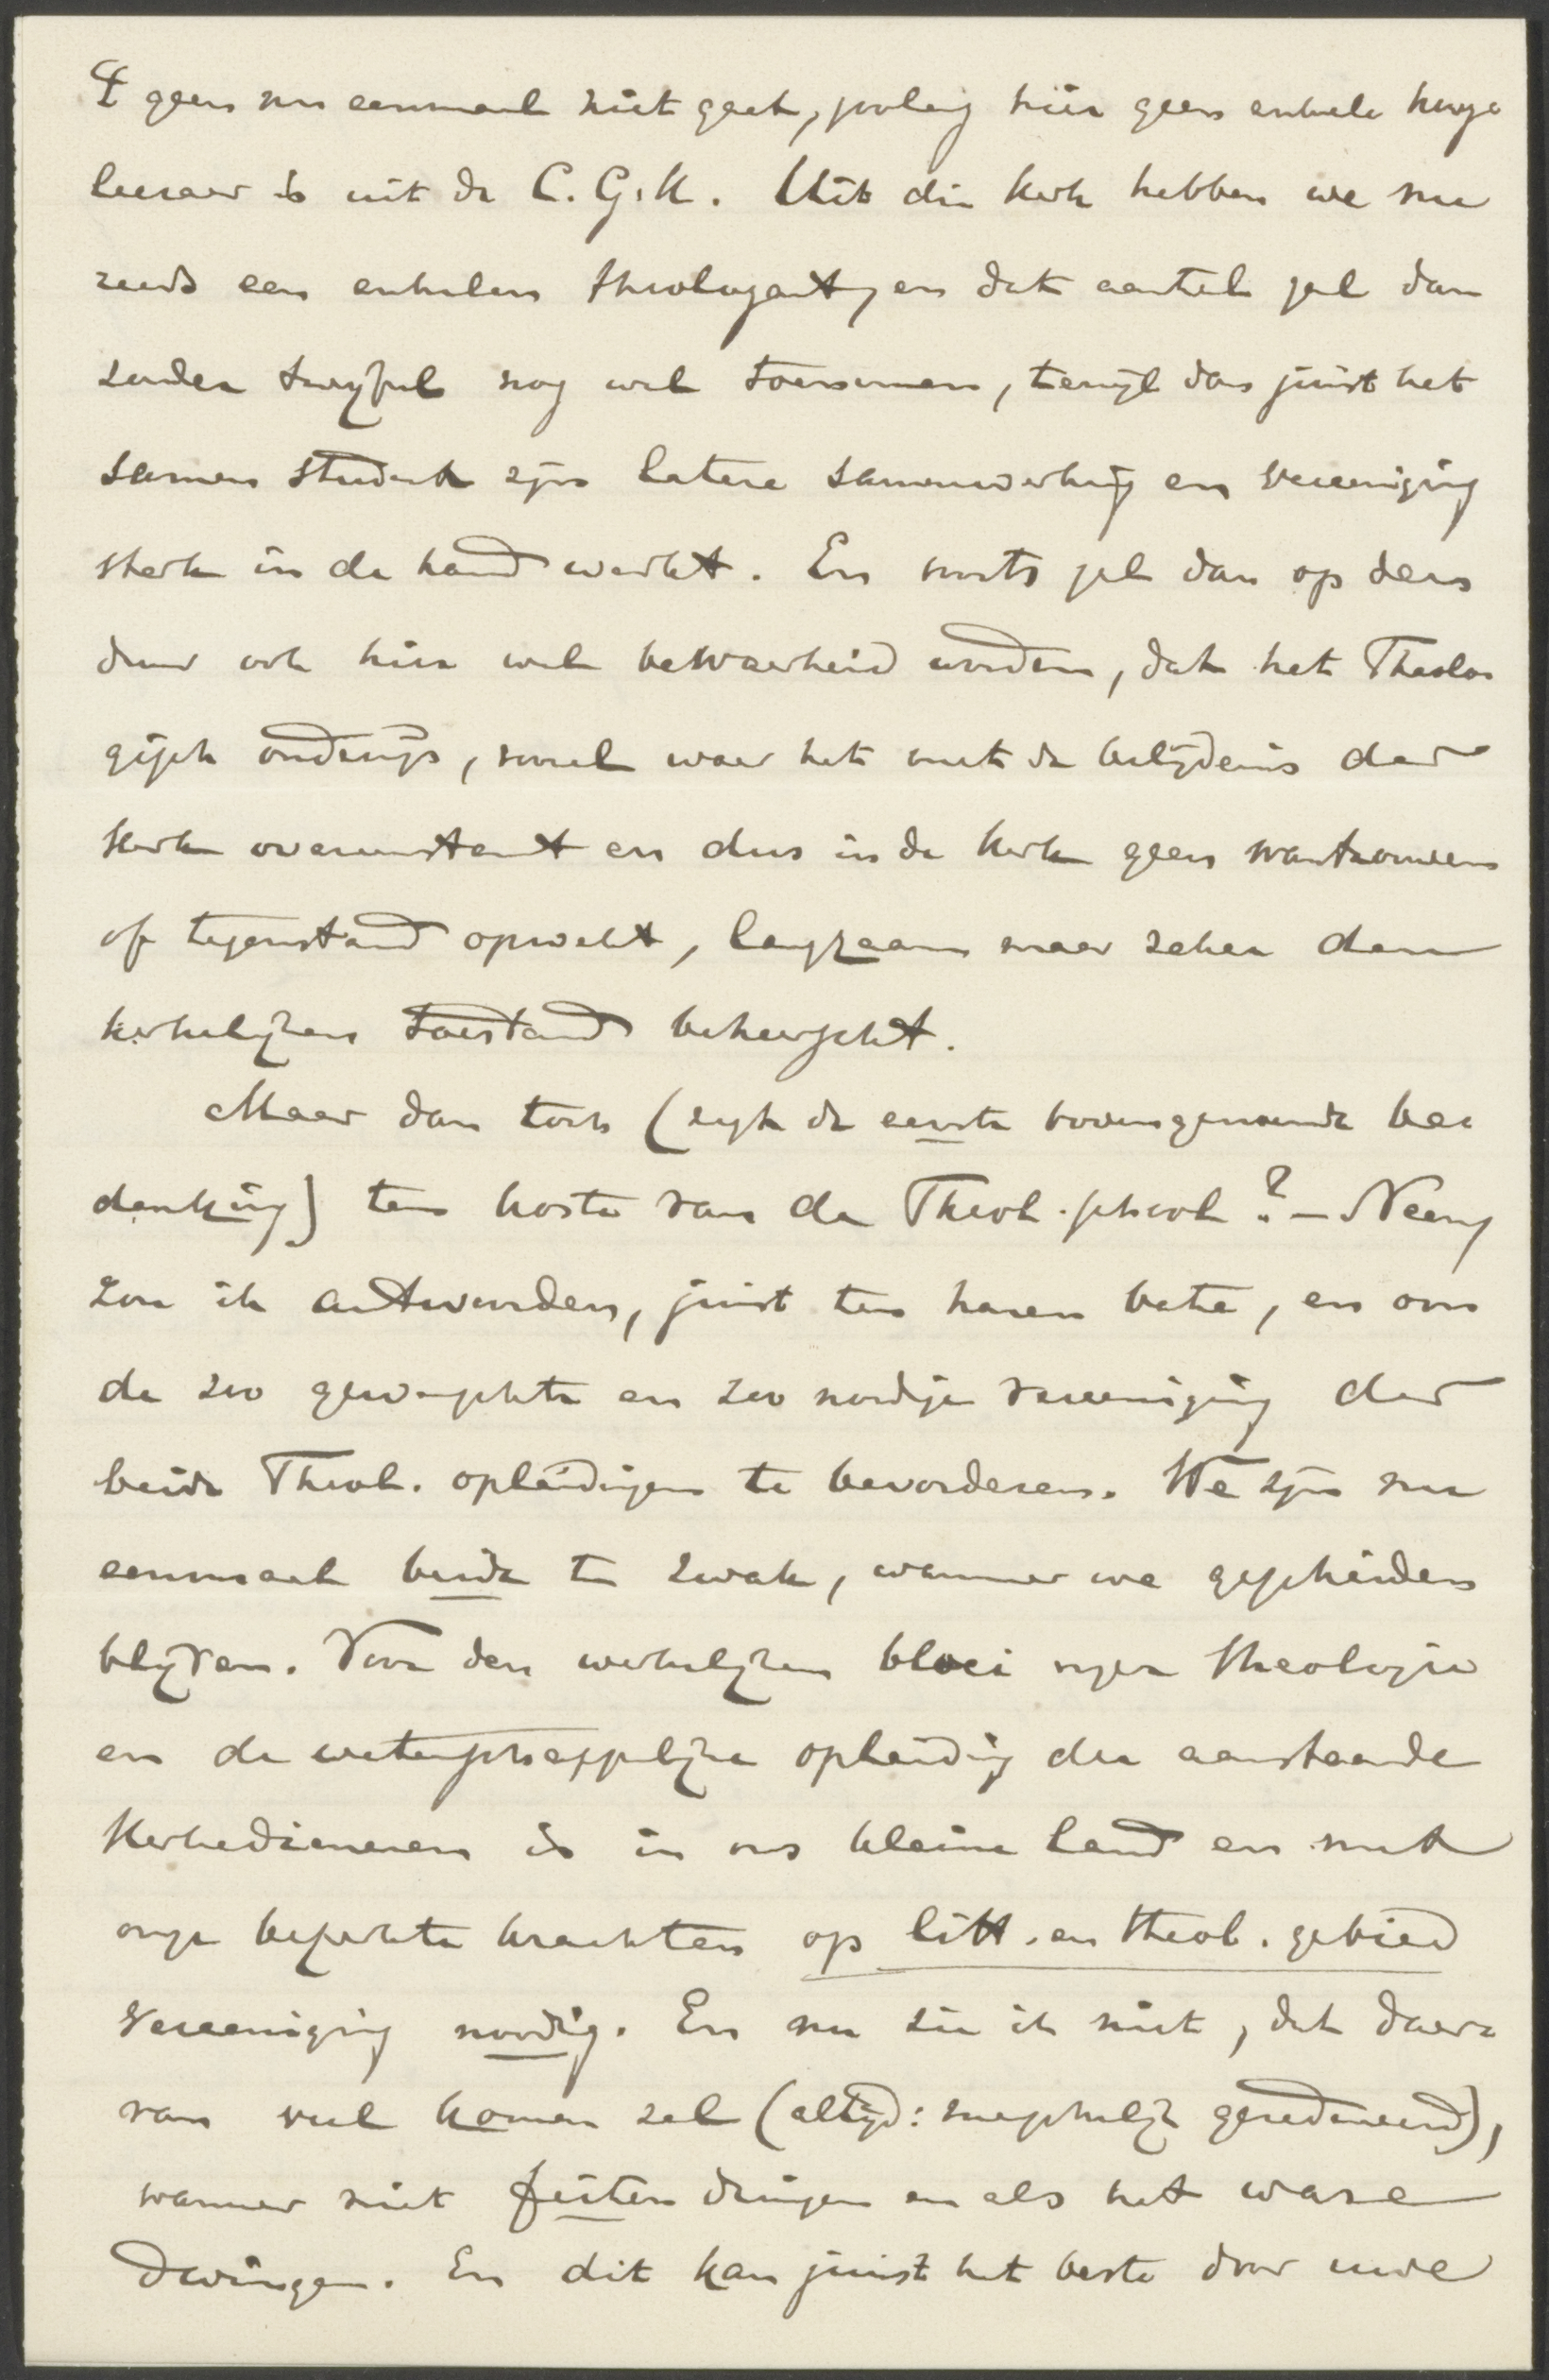 geen nu eenmaal niet gaat, zoolang hier geen enkele hooge
leeraar is uit de C. G. K. Uit die kerk hebben we nu
reeds een enkelen theologant, en dat aantal zal dan
zonder twijfel nog wel toenemen, terwijl dan juist het
samen student zijn latere samenwerking en vereeniging
sterk in de hand werkt. En voorts zal dan op den
duur ook hier wel bewaarheid worden, dat het Theolo
gisch onderwijs, vooral waar het met de belijdenis der
kerk overeenstemt en dus in de kerk geen wantrouwen
of tegenstand opwekt, langzaam maar zeker den
kerkelijken toestand beheerscht.
Maar dan toch (zegt de eerste bovengenoemde be-
denking) ten koste van de Theol. school? – Neen,
zou ik antwoorden, juist ten haren bate, en om
de zoo gewenschte en zoo noodige vereeniging der
beide Theol. opleidingen te bevorderen. We zijn nu
eenmaal beide te zwak, wanneer we gescheiden
blijven. Voor den werkelijken bloei onzer theologie
en de wetenschappelijke opleiding der aanstaande
Kerkedienaren is in ons kleine land en met
onze beperkte krachten op litt. en theol. gebied
vereeniging noodig. En nu zie ik niet, dat daar-
van veel komen zal (altijd: menschelijk geredeneerd),
wanneer niet feiten dringen en als het ware
dwingen. En dit kan juist het beste door uwe